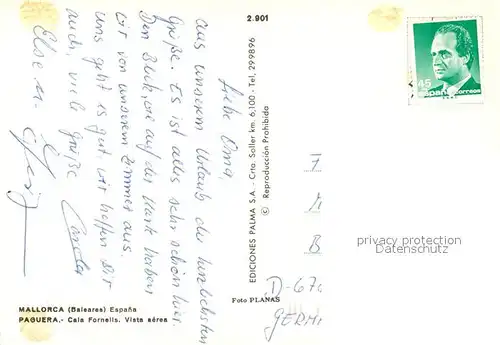 2.901
Liebe Oma,
aus unserem Urlaub die herzlichsten
Grüße. Es ist alles sehr schön hier.
Den Blick, wie auf der Karte haben
wir von unserem Zimmer aus.
Uns geht es gut wir hoffen Dir
auch, viele Grüße
Else u.
MALLORCA (Baleares) España
PAGUERA.- Cala Fornells. Vista aérea
EDICIONES PALMA S.A. - Crta. Soller km. 6,100 - Tel. 299896
© Reproducción Prohibida
Foto PLANAS
45
España correos
privacy protection
Datenschutz
D-670
GERM